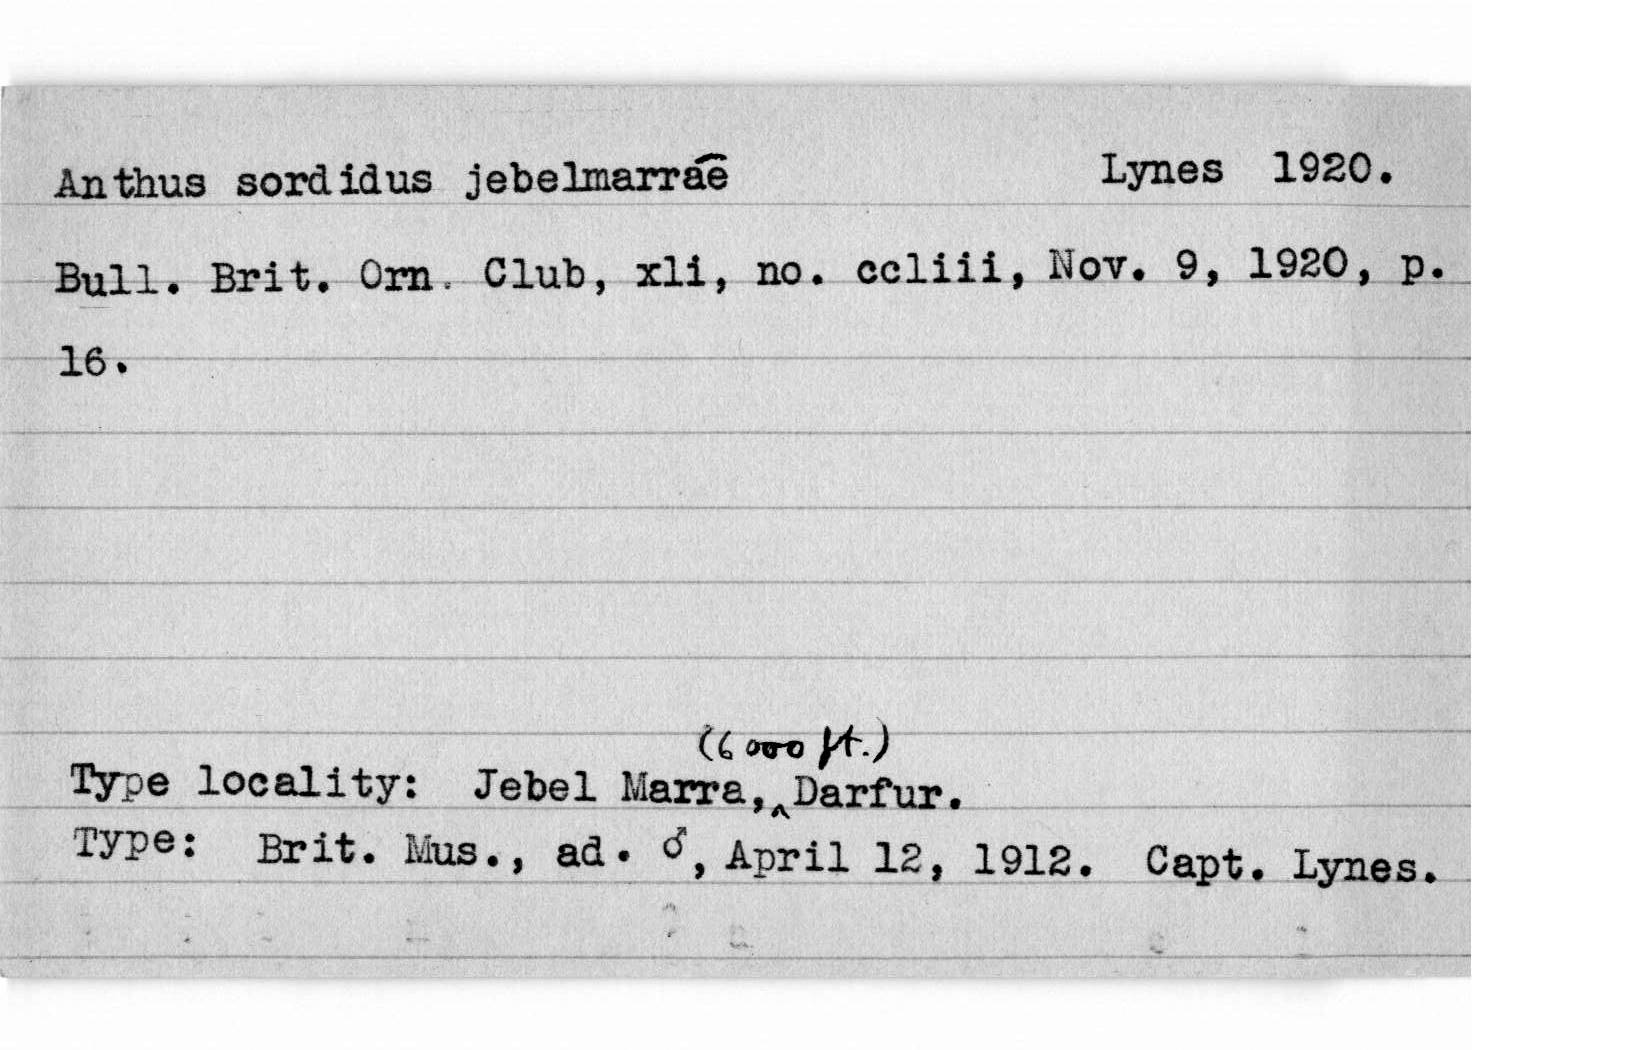 Anthus sordidus jebelmarrae Lynes 1920.
Bull. Brit. Orn. Club, xli, no. ccliii, Nov. 9, 1920, p.
16.
(6000 ft.)
Type locality: Jebel Marra,^Darfur.
Type: Brit. Mus., ad. ♂, April 12, 1912. Capt. Lynes.